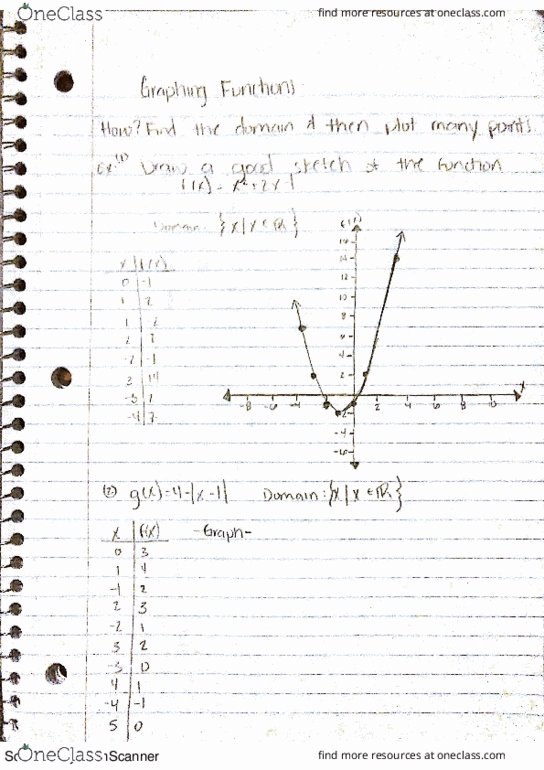 OneClass
find more resources at oneclass.com
Graphing Functions
How? Find the domain & then plot many points!
Ex: (1) Draw a good sketch of the function
f(x) = x²+2x-1
Domain: {x|x∈ℝ}
f(x)
x | f(x)
0 | -1
1 | 2
2 | 7
-2 | -1
3 | 14
-3 | 2
-4 | 7
14
12
10
8
6
4
2
-8 -6 -4 -2 2 4 6 8 10 x
-2
-4
-6
(2) g(x)=4-|x-1| Domain: {x|x∈ℝ}
x | f(x) -Graph-
0 | 3
1 | 4
-1 | 2
2 | 3
-2 | 1
3 | 2
-3 | 0
4 | 1
-4 | -1
5 | 0
OneClass
Scanner
find more resources at oneclass.com